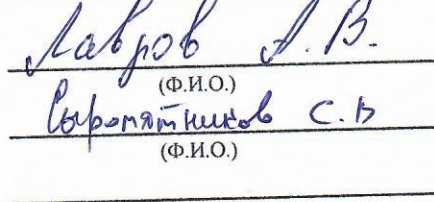 Лавров А.В.
(Ф.И.О.)
Сыромятников С.В
(Ф.И.О.)